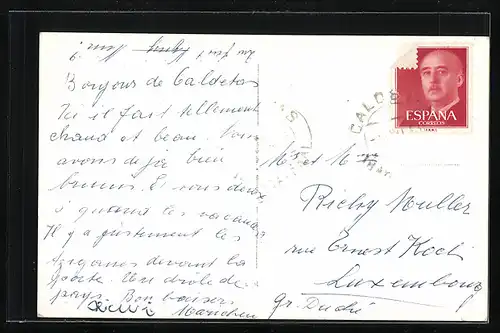 Bonjour de Caldetas
Ici il fait tellement
chaud et beau. Nous
avons déjà bien
brunis. Et vous deux
à quand les vacances
Il y a justement les
tziganes devant la
porte. Une drôle de
pays. Bon baisers
CALDE
ESPAÑA
CORREOS
Mr et Mme
Richy Muller
rue Ernest Koch
Luxembourg
Gr. Duché